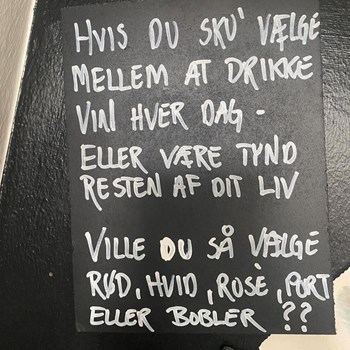 HVIS DU SKU' VÆLGE
MELLEM AT DRIKKE
VIN HVER DAG -
ELLER VÆRE TYND
RESTEN AF DIT LIV
VILLE DU SÅ VÆLGE
RØD, HVID, ROSÈ, PORT
ELLER BOBLER ??